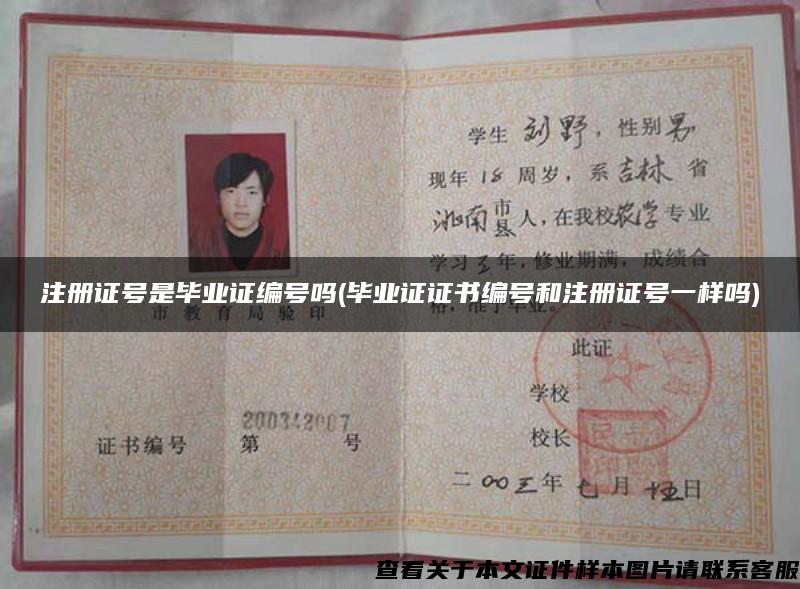 学生刘野，性别男
现年18周岁，系吉林省
洮南市县人，在我校农学专业
学习三年，修业期满，成绩合
注册证号是毕业证编号吗(毕业证证书编号和注册证号一样吗)
市教育局验印
格，准予毕业。
此证
学校
校长
200342007
证书编号 第 号
二〇〇三年七月十五日
查看关于本文证件样本图片请联系客服